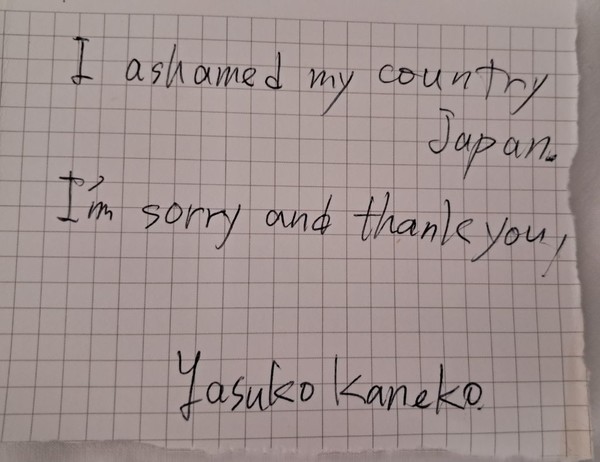 I ashamed my country
Japan.
I'm sorry and thank you,
Yasuko Kaneko.